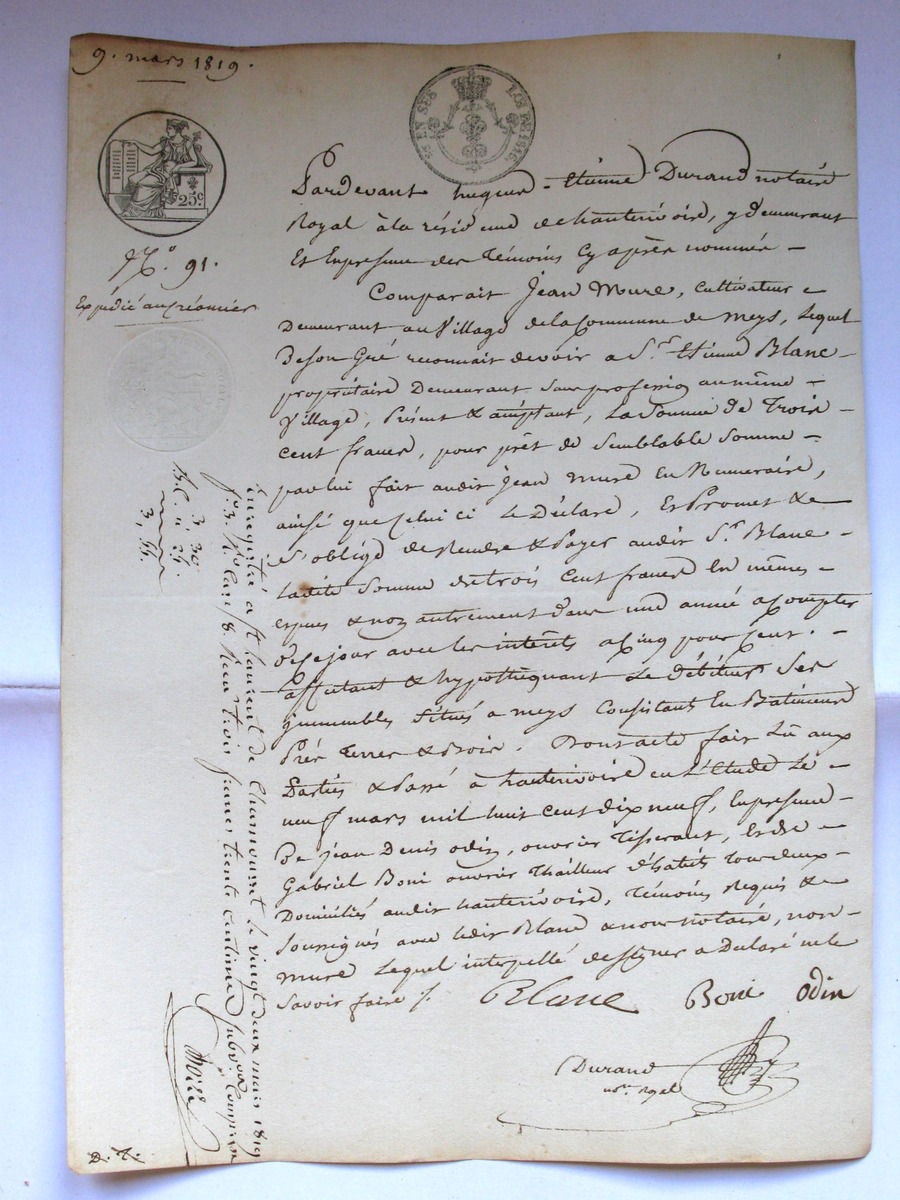 9. mars 1819.
EN SUS LOI DE 1816
25c
No. 91.
Expédié au Créancier
Pardevant hugue-Etienne Durand notaire
Royal à la résidence de hauterivoire, y demeurant
Et En presence des Témoins Cy après nommés -
Comparait Jean Mure, Cultivateur
Demeurant au Village de la Commune de Meys, Lequel
De son Gré reconnait devoir a Sr. Etienne Blanc -
propriétaire Demeurant Sans profession au même -
Village, Présent & acceptant, La Somme de Trois -
Cent francs, pour prêt de Semblable Somme -
par lui fait audit Jean mure En Numeraire,
ainsi que Celui ci Le Déclare, Et Promet &
S'oblige de Rendre & Payer audit Sr. Blanc -
Ladite Somme de trois Cent francs En mêmes -
espèces & non autrement dans une année a Compter
De Ce jour avec les intérêts a Cinq pour Cent. -
affectant & hypothéquant Le Débiteur Ses
immeubles Situés a meys Consistants En Batiments
Prés Terres & Bois. Dont acte fait Lu aux
Parties & Passé à hauterivoire en L'Etude Le -
neuf mars mil huit cent dix neuf, En presence -
De jean Denis odin, ouvrier Tisserant, Et de -
Gabriel Boni ouvrier Thailleur d'habits Tous deux -
Domiciliés audit hauterivoire, Témoins Requis &
Soussignés avec Ledit Blanc & nous notaire, non -
mure Lequel interpellé de Signer a Déclaré ne le
Savoir faire /.
Blanc Boni Odin
Durand
not. Royal
3. 30
33.
3, 63.
Enregistré a St Laurent de Chamousset le vingt deux mars 1819
fo. 3. Ro. Case 8. Reçu trois francs trente centimes subvon. Comprise